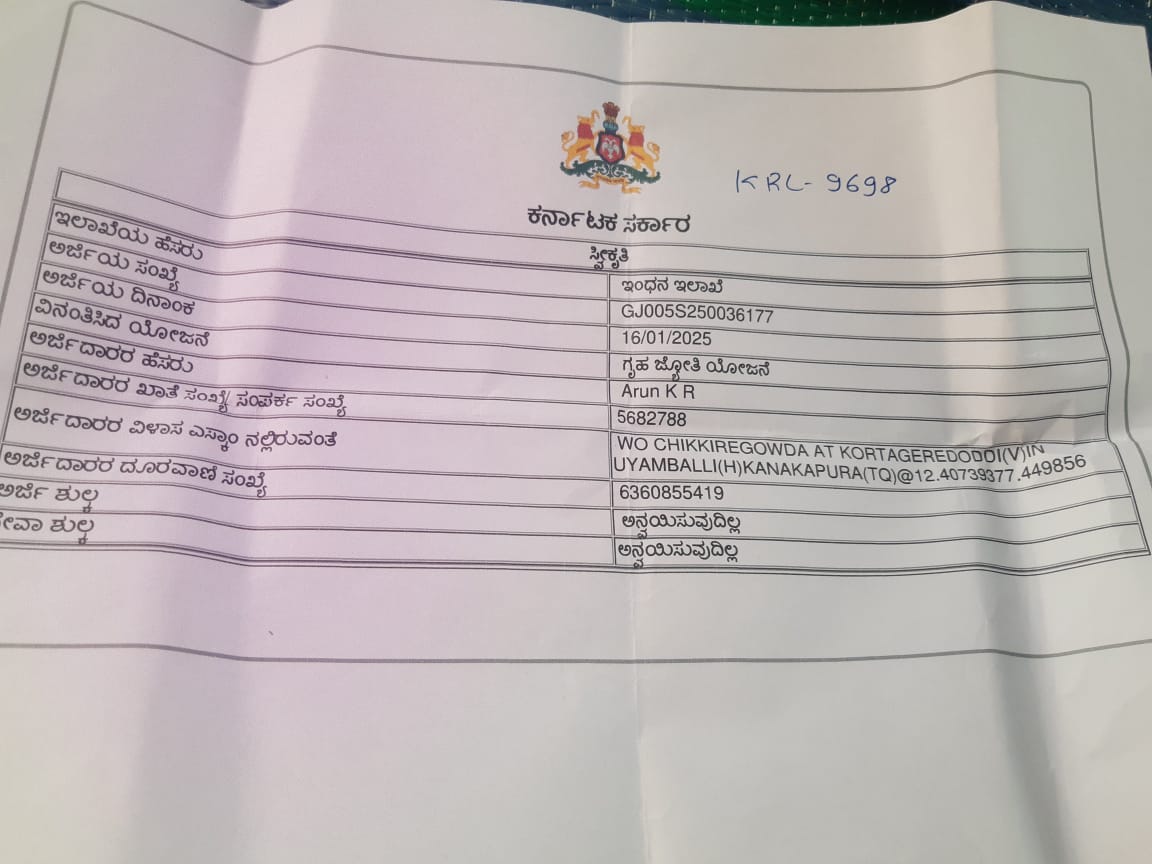 KRL-9698
ಕರ್ನಾಟಕ ಸರ್ಕಾರ
ಸ್ವೀಕೃತಿ
ಇಲಾಖೆಯ ಹೆಸರು ಇಂಧನ ಇಲಾಖೆ
ಅರ್ಜಿಯ ಸಂಖ್ಯೆ GJ005S250036177
ಅರ್ಜಿಯ ದಿನಾಂಕ 16/01/2025
ವಿನಂತಿಸಿದ ಯೋಜನೆ ಗೃಹ ಜ್ಯೋತಿ ಯೋಜನೆ
ಅರ್ಜಿದಾರರ ಹೆಸರು Arun K R
ಅರ್ಜಿದಾರರ ಖಾತೆ ಸಂಖ್ಯೆ/ ಸಂಪರ್ಕ ಸಂಖ್ಯೆ 5682788
ಅರ್ಜಿದಾರರ ವಿಳಾಸ ಎಸ್ಕಾಂ ನಲ್ಲಿರುವಂತೆ WO CHIKKIREGOWDA AT KORTAGEREDODDI(V)IN
UYAMBALLI(H)KANAKAPURA(TQ)@12.40739377.449856
ಅರ್ಜಿದಾರರ ದೂರವಾಣಿ ಸಂಖ್ಯೆ 6360855419
ಅರ್ಜಿ ಶುಲ್ಕ ಅನ್ವಯಿಸುವುದಿಲ್ಲ
ಶುಲ್ಕ ಅನ್ವಯಿಸುವುದಿಲ್ಲ